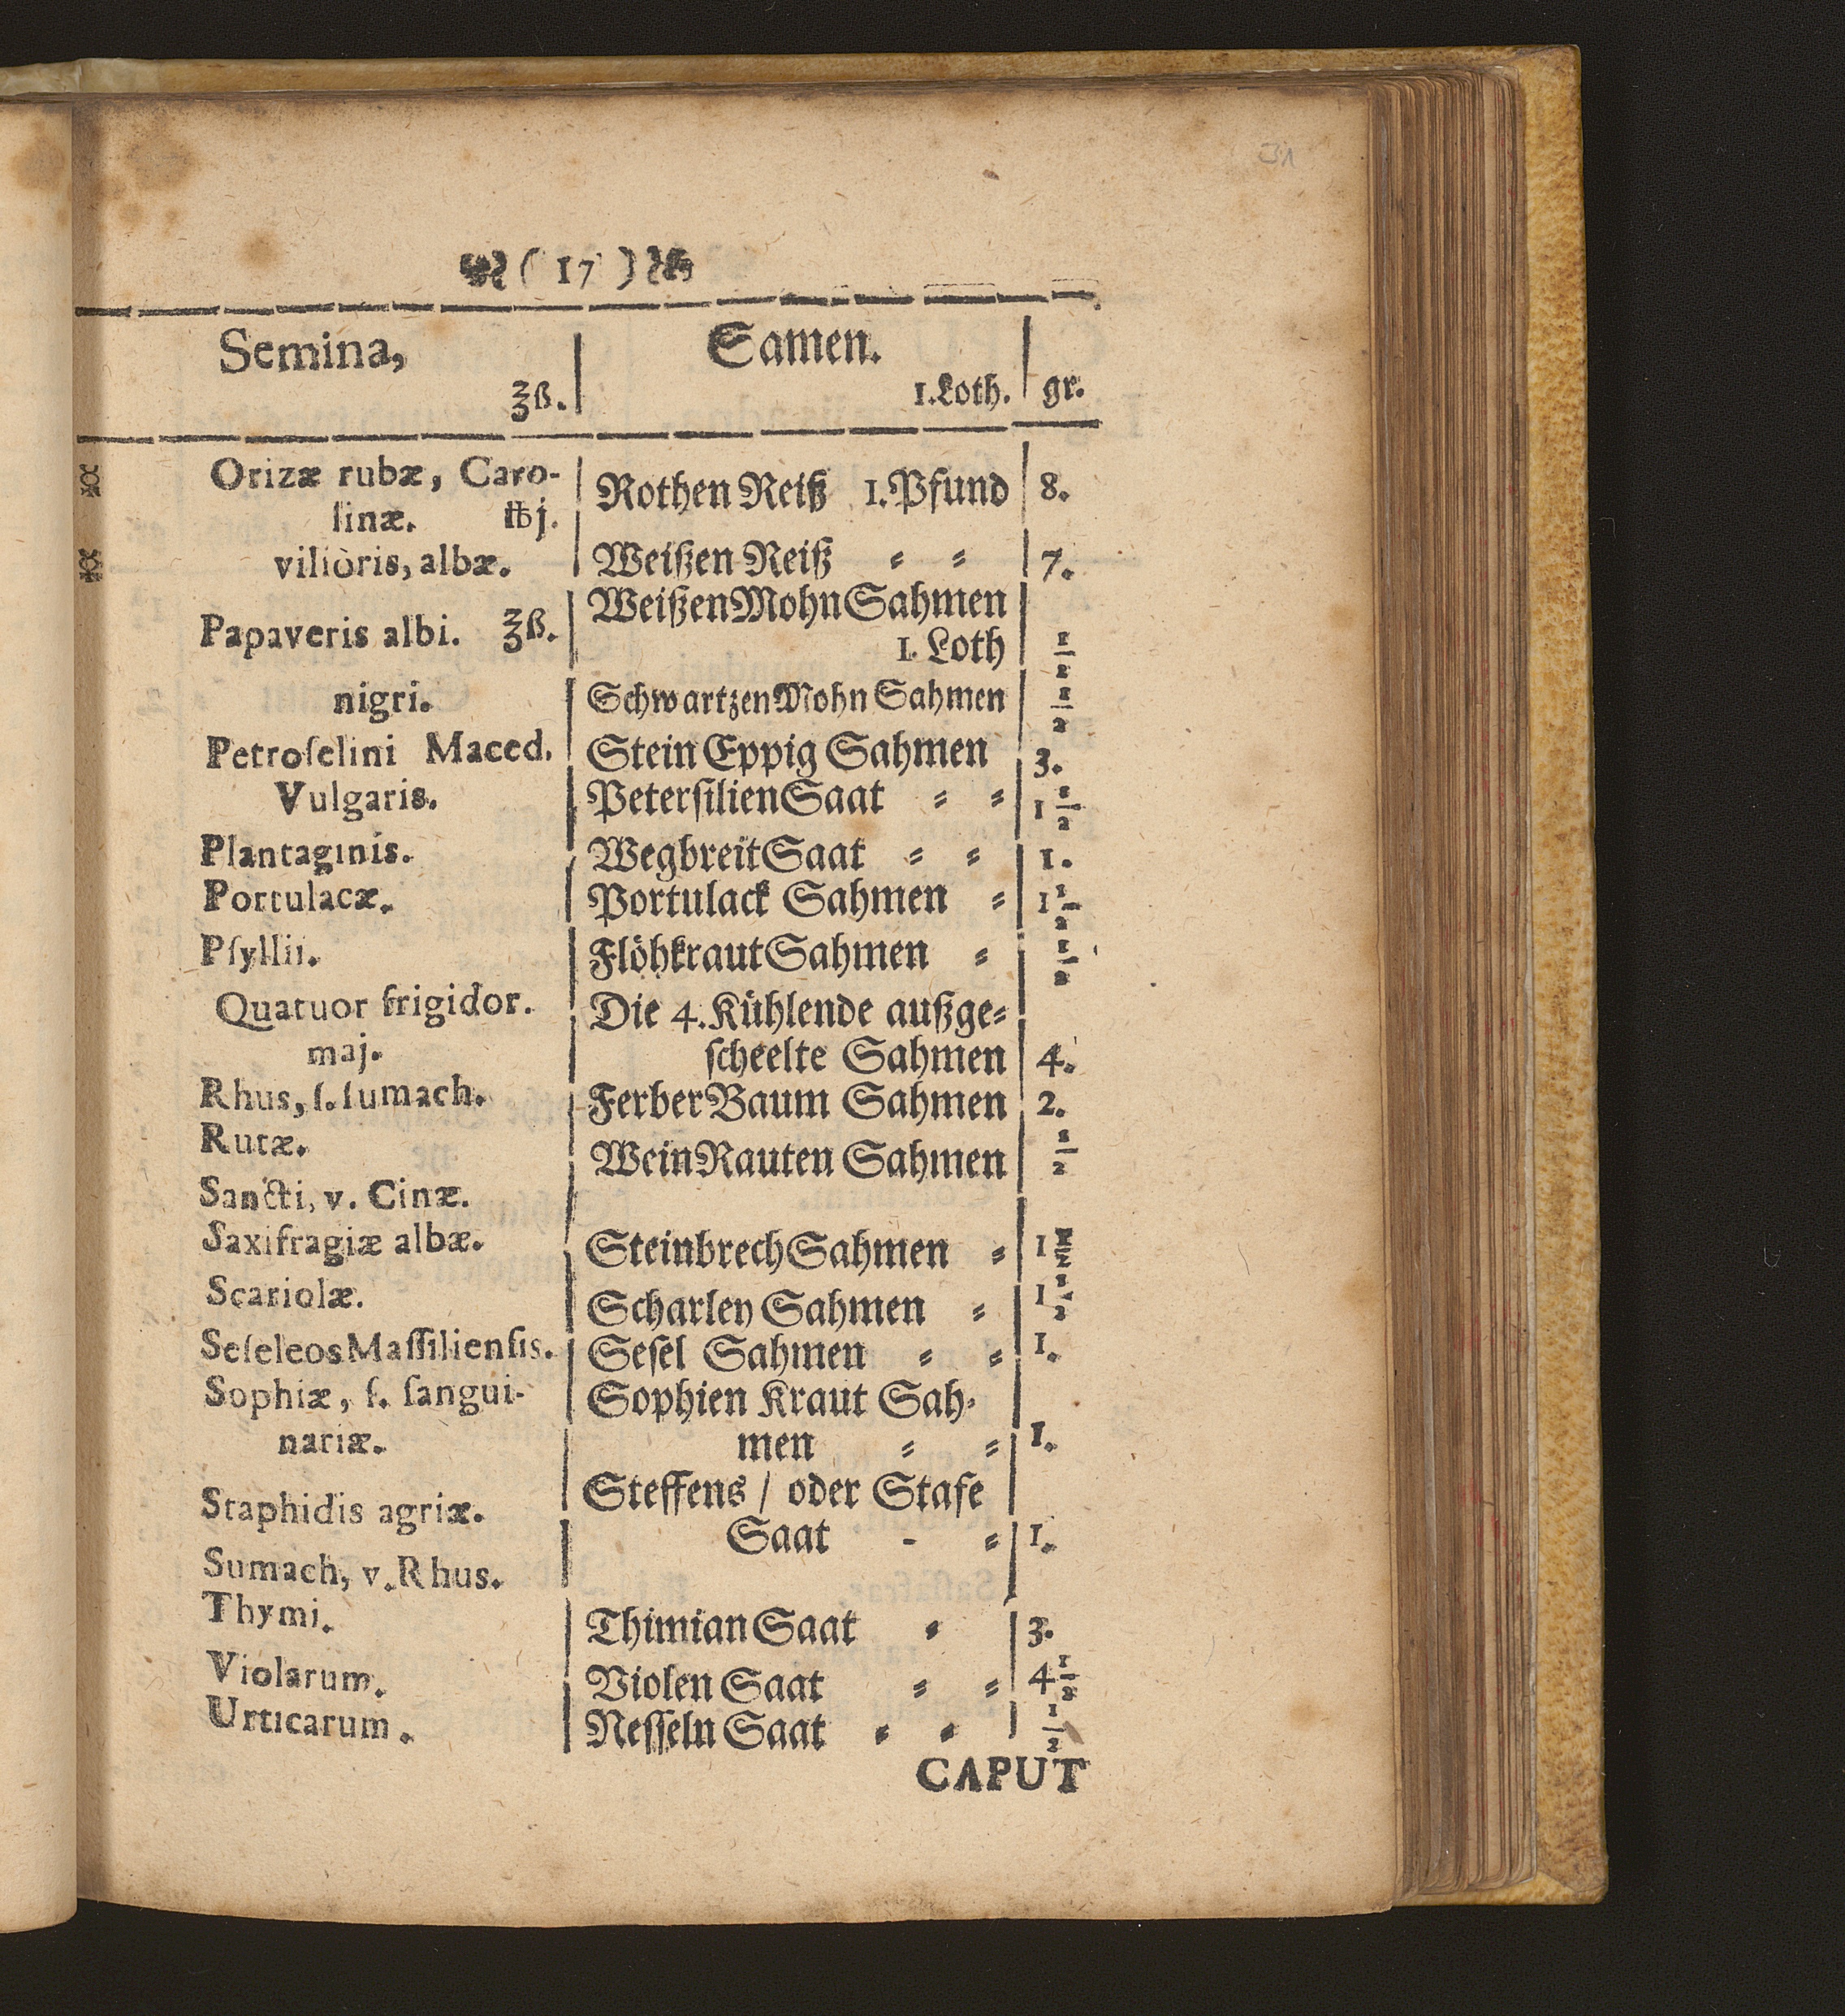 31
( 17 )
Semina, Samen.
℥ß. 1.Loth. gr.
Orizæ rubæ, Caro- Rothen Reiß 1.Pfund 8.
linæ. ℔j.
viliòris, albæ. Weißen Reiß ⸗ ⸗ 7.
Papaveris albi. ℥ß. WeißenMohnSahmen
1. Loth 1/2
nigri. SchwartzenMohn Sahmen 1/2
Petroſelini Maced. Stein Eppig Sahmen 3.
Vulgaris. PeterſilienSaat ⸗ ⸗ 1 1/2
Plantaginis. WegbreitSaat ⸗ ⸗ 1.
Portulacæ. Portulack Sahmen ⸗ 1 1/2
Pſyllii. FlöhkrautSahmen ⸗ 1/2
Quatuor frigidor. Die 4. Kühlende außge⸗
maj. ſcheelte Sahmen 4.
Rhus, ſ. ſumach. FerberBaum Sahmen 2.
Rutæ. WeinRauten Sahmen 1/2
Sancti, v. Cinæ.
Saxifragiæ albæ. SteinbrechSahmen ⸗ 1 1/2
Scariolæ. Scharley Sahmen ⸗ 1 1/2
Seſeleos Maſſilienſis. Seſel Sahmen ⸗ ⸗ 1.
Sophiæ, ſ. ſangui- Sophien Kraut Sah⸗
nariæ. men ⸗ ⸗ 1.
Staphidis agriæ. Steffens / oder Stafe
Saat - ⸗ 1.
Sumach, v. Rhus.
Thymi. Thimian Saat ⸗ 3.
Violarum. Violen Saat ⸗ ⸗ 4 1/2
Urticarum. Neſſeln Saat ⸗ ⸗ 1/2
CAPUT